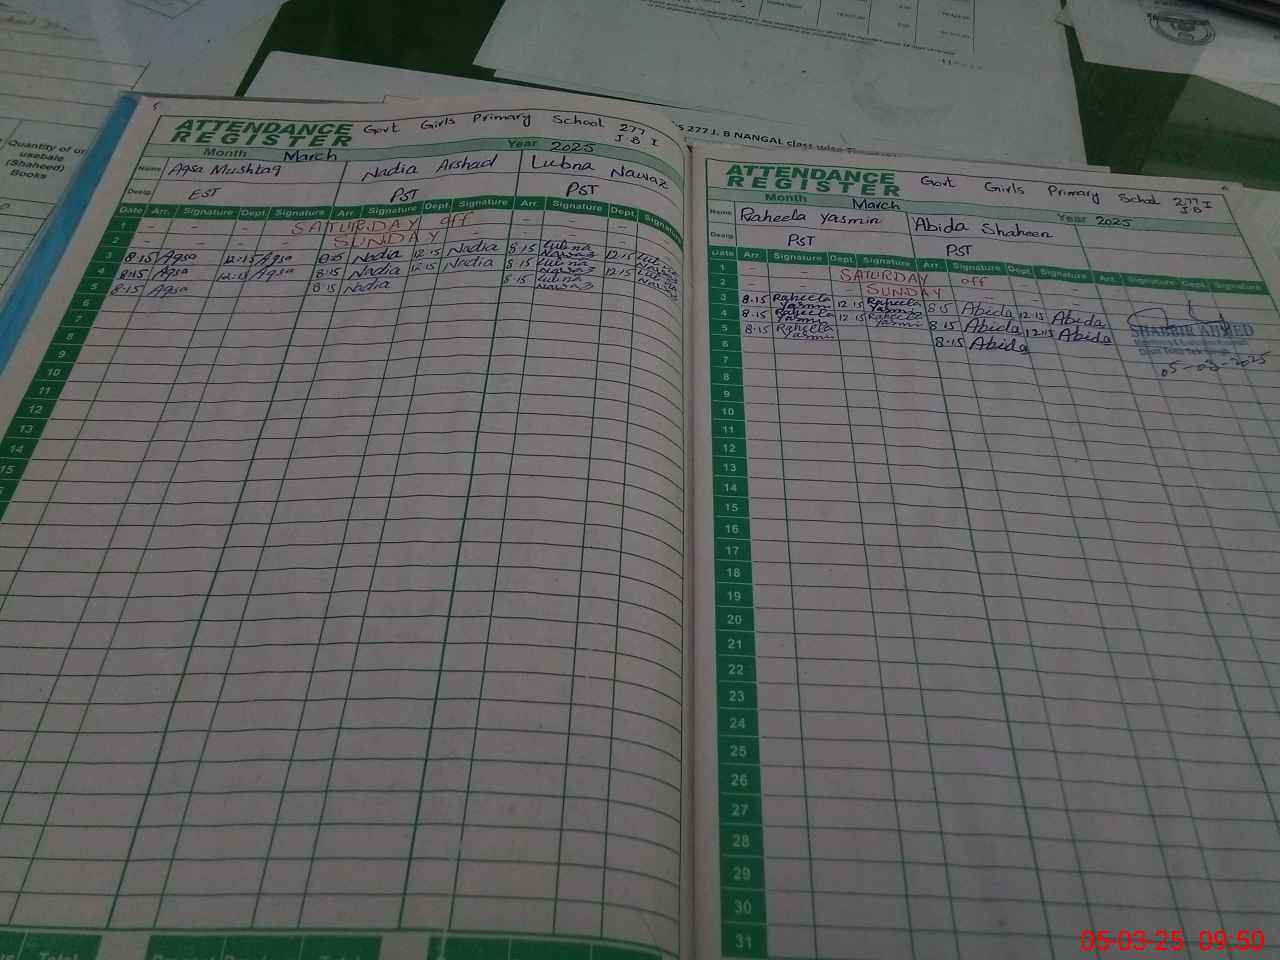 Quantity of un
usebale
(Shaheed)
Books
277 J. B NANGAL class wise
ATTENDANCE
REGISTER
Govt Girls Primary School 277
J B I
Month March Year 2025
Name Aqsa Mushtaq Nadia Arshad Lubna Nawaz
Desig. EST PST PST
Date Arr. Signature Dept. Signature Arr. Signature Dept. Signature Arr. Signature Dept. Signature
1 - - SATURDAY off - - - -
2 - - SUNDAY - - - -
3 8:15 Aqsa 12:15 Aqsa 8:15 Nadia 12:15 Nadia 8:15 Lubna Nawaz 12:15 Lubna Nawaz
4 8:15 Aqsa 12:15 Aqsa 8:15 Nadia 12:15 Nadia 8:15 Lubna Nawaz 12:15 Lubna Nawaz
5 8:15 Aqsa 8:15 Nadia 8:15 Lubna Nawaz
6
7
8
9
10
11
12
13
14
15
Total Total
ATTENDANCE
REGISTER
Govt Girls Primary School 277 I
J.B
Month March Year 2025
Name Raheela Yasmin Abida Shaheen
Desig. PST PST
Date Arr. Signature Dept. Signature Arr. Signature Dept. Signature Arr. Signature Dept. Signature
1 - - SATURDAY off - -
2 - - SUNDAY - - -
3 8.15 Raheela Yasmin 12 15 Raheela Yasmin 8 15 Abida 12 15 Abida
4 8.15 Raheela Yasmin 12 15 Raheela Yasmin 8 15 Abida 12:15 Abida
5 8.15 Raheela Yasmin 8.15 Abida
SHABBIR AHMED
05-03-2025
6
7
8
9
10
11
12
13
14
15
16
17
18
19
20
21
22
23
24
25
26
27
28
29
30
31
05-03-25 09:50